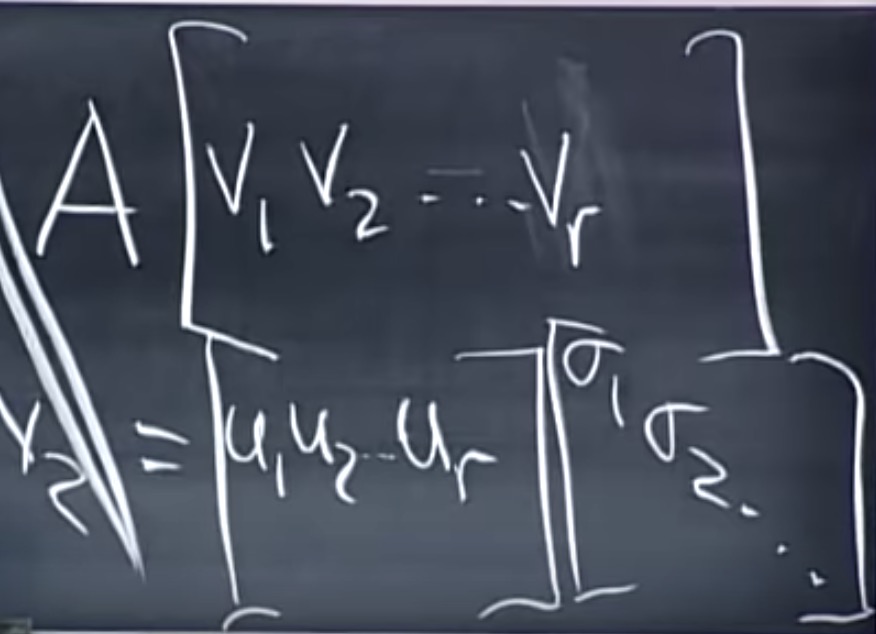 A [v₁ v₂ - ·· vᵣ]
v₂ = [u₁ u₂ ·· uᵣ] [σ₁ σ₂ ⋱]